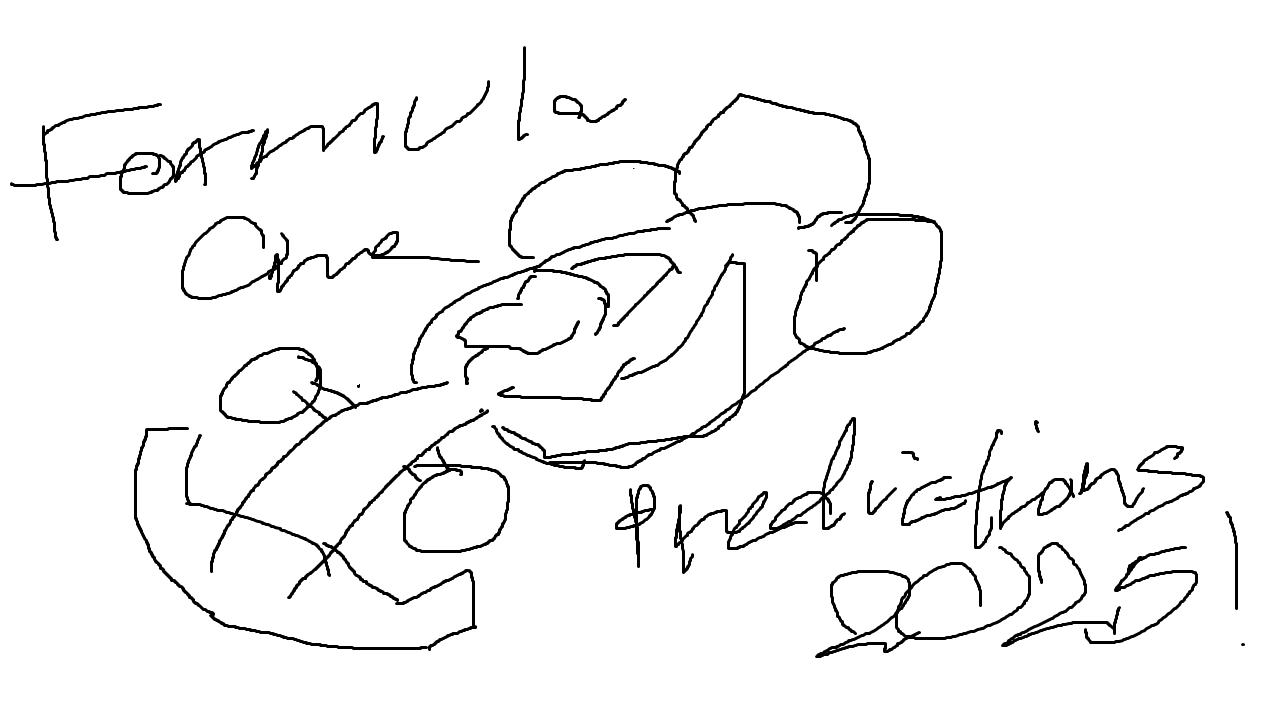 Formula
One
Predictions
2025!